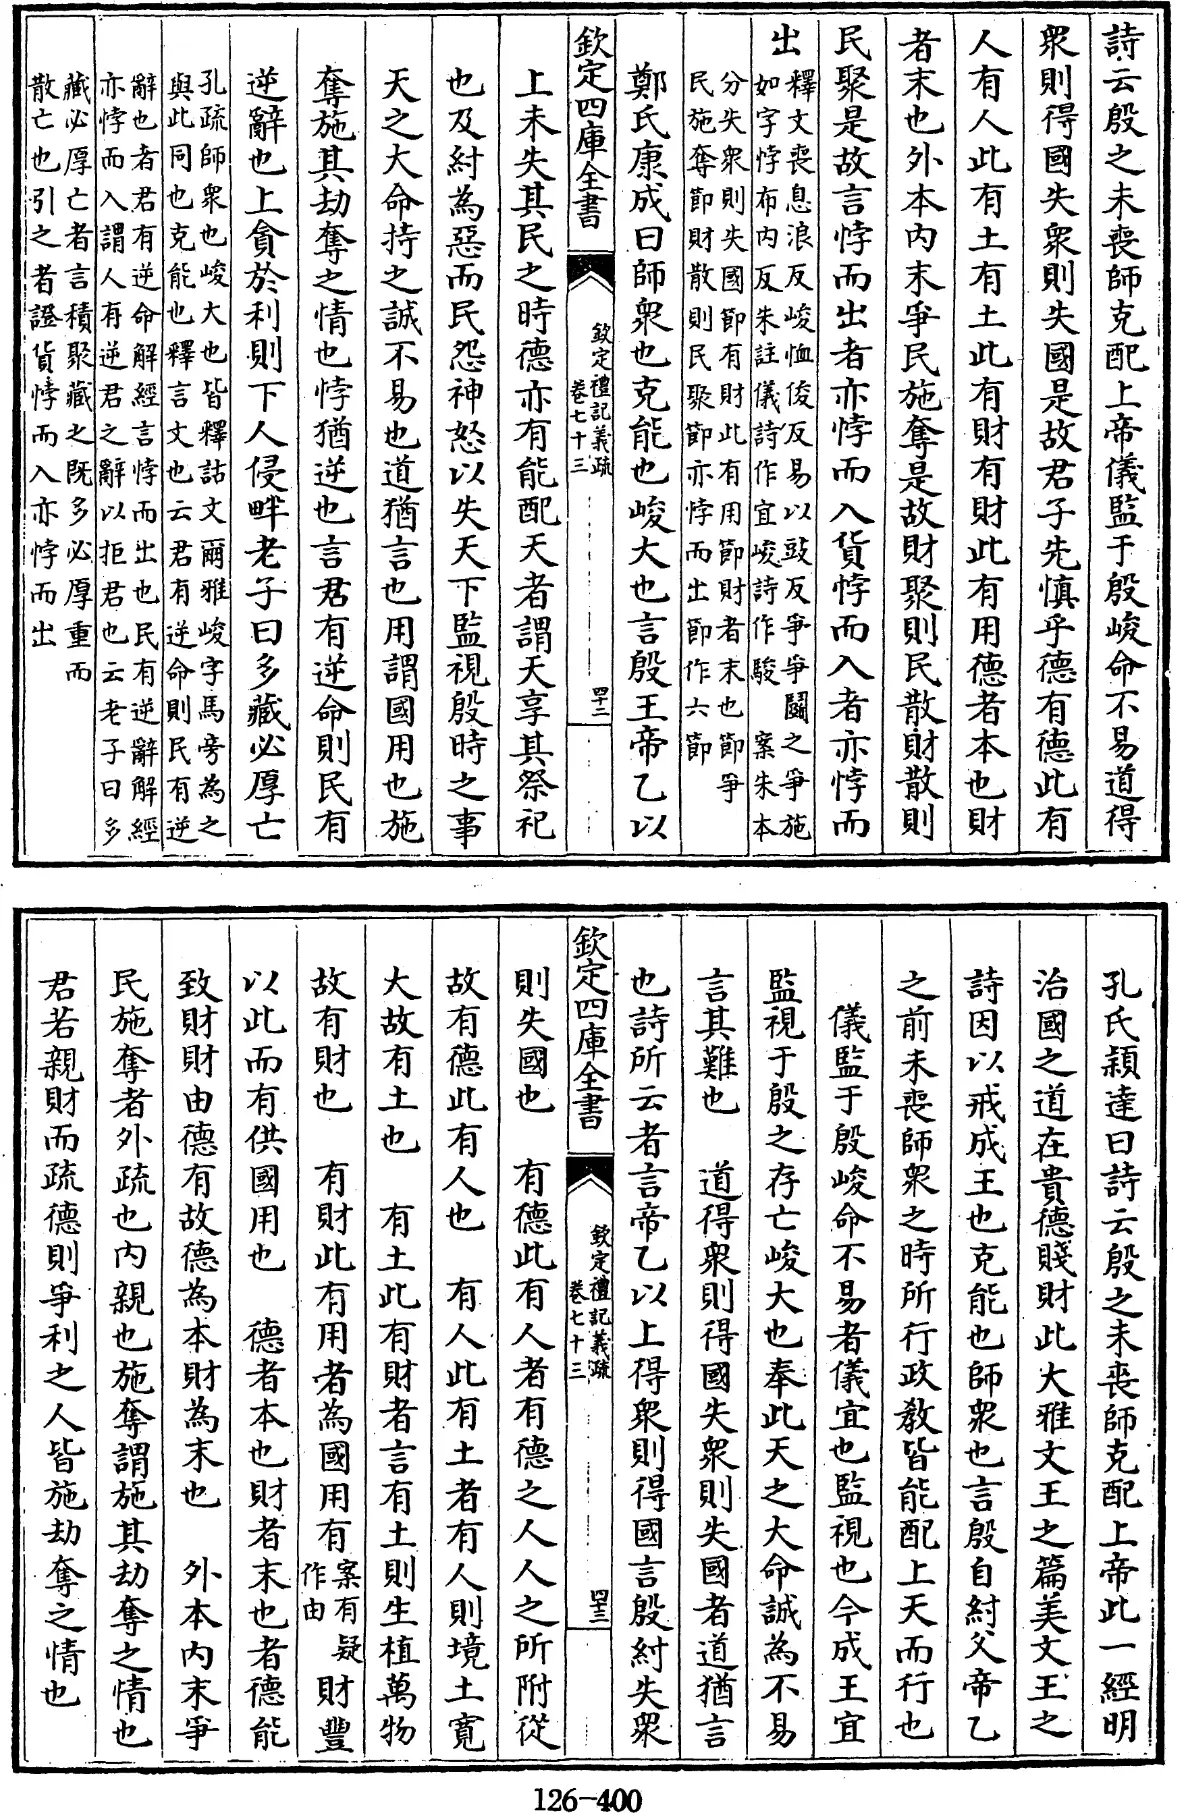 詩云殷之未喪師克配上帝儀監于殷峻命不易道得
衆則得國失衆則失國是故君子先慎乎德有德此有
人有人此有土有土此有財有財此有用德者本也財
者末也外本內末爭民施奪是故財聚則民散財散則
民聚是故言悖而出者亦悖而入貨悖而入者亦悖而
出
釋文喪息浪反峻恤俊反易以豉反爭爭鬬之爭施
如字悖布內反朱註儀詩作宜峻詩作駿 案朱本
分失衆則失國節有財此有用節財者末也節爭
民施奪節財散則民聚節亦悖而出節作六節
鄭氏康成曰師衆也克能也峻大也言殷王帝乙以
欽定四庫全書
欽定禮記義疏
卷七十三
四十二
上未失其民之時德亦有能配天者謂天享其祭祀
也及紂為惡而民怨神怒以失天下監視殷時之事
天之大命持之誠不易也道猶言也用謂國用也施
奪施其劫奪之情也悖猶逆也言君有逆命則民有
逆辭也上貪於利則下人侵畔老子曰多藏必厚亡
孔疏師衆也峻大也皆釋詁文爾雅峻字馬旁為之
與此同也克能也釋言文也云君有逆命則民有逆
辭也者君有逆命解經言悖而出也民有逆辭解經
亦悖而入謂人有逆君之辭以拒君也云老子曰多
藏必厚亡者言積聚藏之既多必厚重而
散亡也引之者證貨悖而入亦悖而出
孔氏穎達曰詩云殷之未喪師克配上帝此一經明
治國之道在貴德賤財此大雅文王之篇美文王之
詩因以戒成王也克能也師衆也言殷自紂父帝乙
之前未喪師衆之時所行政教皆能配上天而行也
儀監于殷峻命不易者儀宜也監視也今成王宜
監視于殷之存亡峻大也奉此天之大命誠為不易
言其難也 道得衆則得國失衆則失國者道猶言
也詩所云者言帝乙以上得衆則得國言殷紂失衆
欽定四庫全書
欽定禮記義疏
卷七十三
四十三
則失國也 有德此有人者有德之人人之所附從
故有德此有人也 有人此有土者有人則境土寬
大故有土也 有土此有財者言有土則生植萬物
故有財也 有財此有用者為國用有案有疑作由財豐
以此而有供國用也 德者本也財者末也者德能
致財財由德有故德為本財為末也 外本內末爭
民施奪者外疏也內親也施奪謂施其劫奪之情也
君若親財而疏德則爭利之人皆施劫奪之情也
126-400